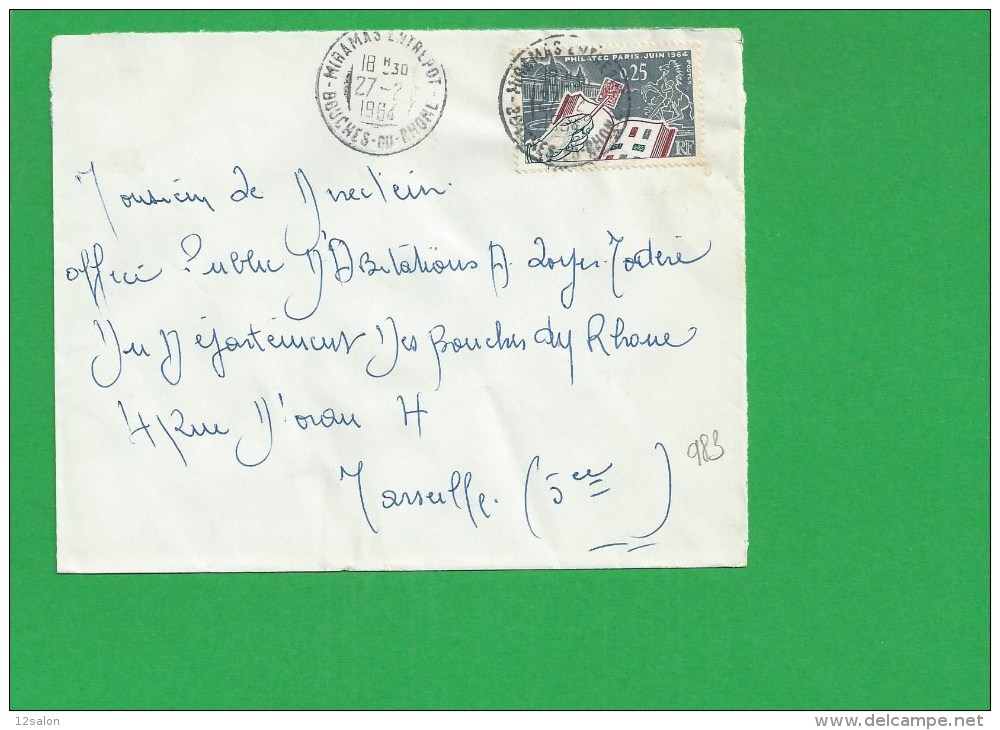 MIRAMAS ENTREPOT
18 H30
27-2
1964
BOUCHES-DU-RHONE
PHILATEC PARIS-JUIN 1964
0,25
POSTES
RF
Monsieur de Directeur
Office Public D'Abitations A Loyer-Modéré
Du Département Des Bouches du Rhone
4 Rue D'oran 4
Marseille. (5ee)
983
12salon
delcampe.net